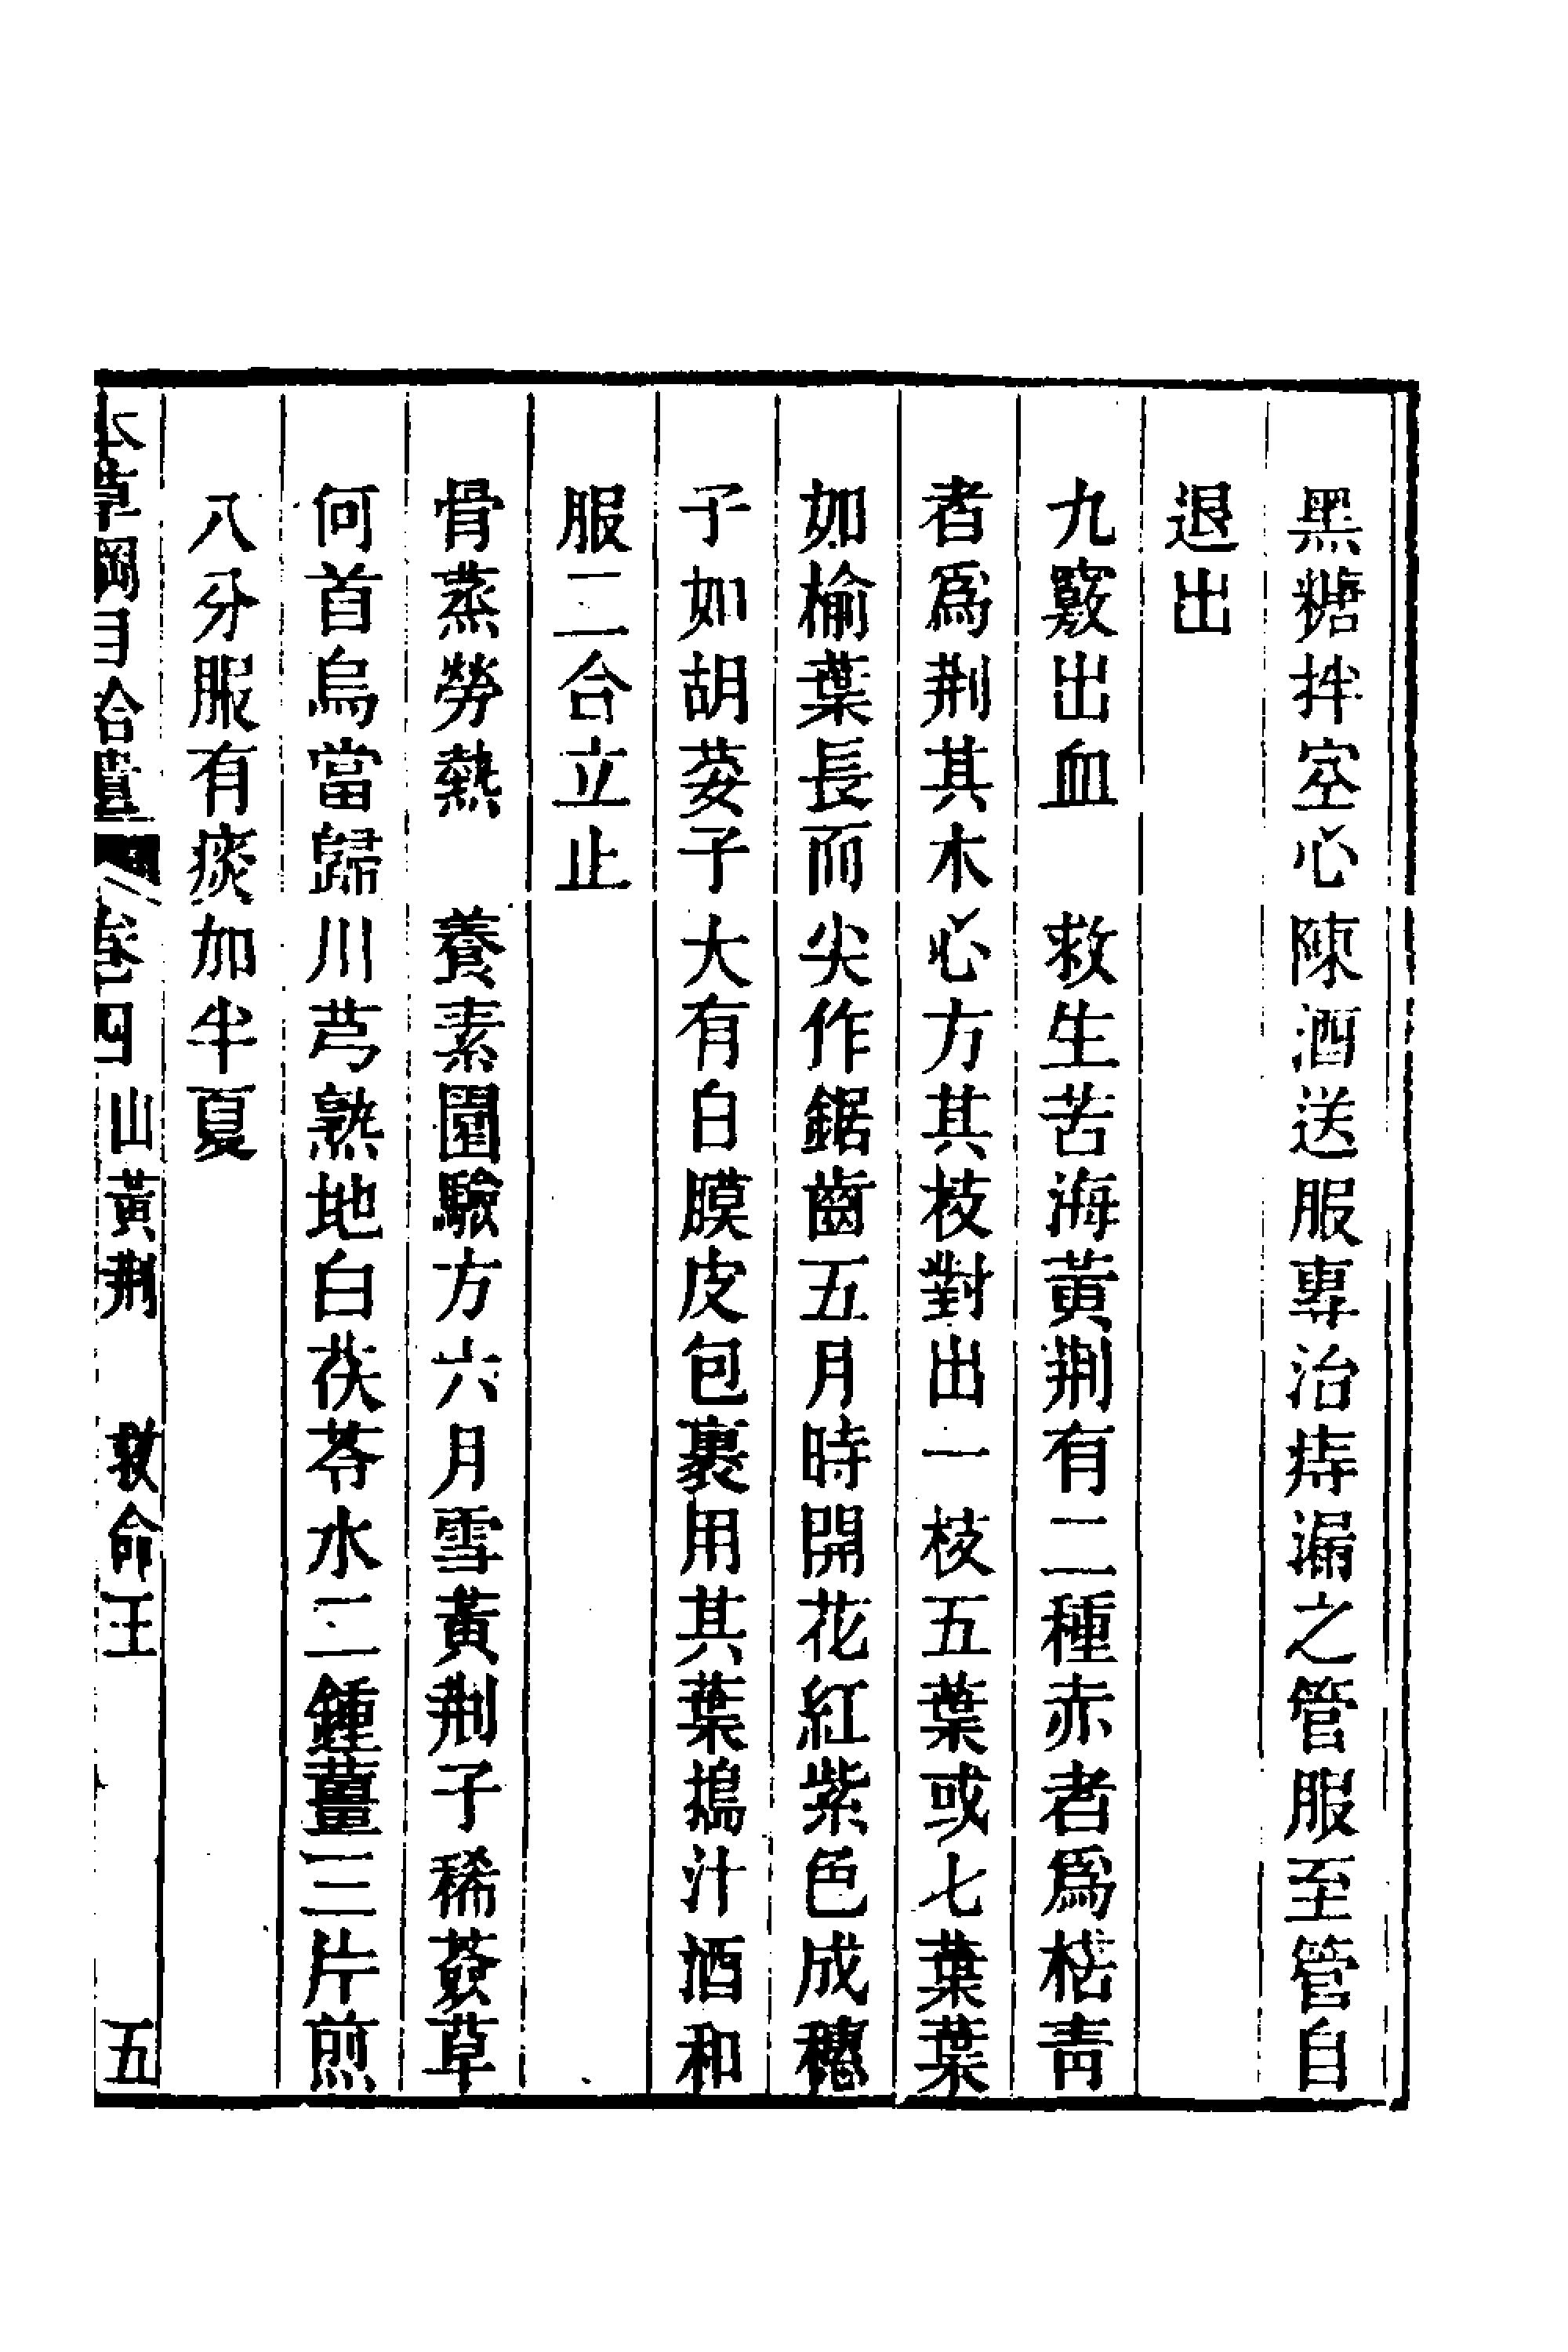 黑糖拌空心陳酒送服專治痔漏之管服至管自
退出
九竅出血　救生苦海黃荆有二種赤者爲楛靑
者爲荆其木心方其枝對出一枝五葉或七葉葉
如榆葉長而尖作鋸齒五月時開花紅紫色成穗
子如胡荽子大有白膜皮包裹用其葉搗汁酒和
服二合立止
骨蒸勞熱　養素園驗方六月雪黃荆子稀薟草
何首烏當歸川芎熟地白茯苓水二鍾薑三片煎
八分服有痰加半夏
本草綱目拾遺　卷四　山黃荆　救命王　五